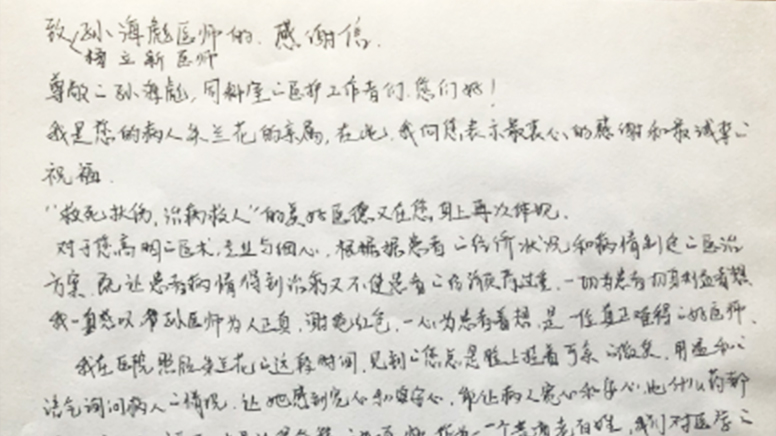 致孙海彪医师的感谢信.
杨立新医师
尊敬二孙海彪,同科室二医护工作者们.您们好!
我是您的病人朱兰花的亲属,在此,我向您表示最衷心的感谢和最诚挚二
祝福.
“救死扶伤,治病救人”的美好医德又在您身上再次体现.
对于您高明二医术,专业与细心,根据据患者二经济状况和病情制定二医治
方案.既让患者病情得到治疗又不使患者二经济负担过重.一切为患者切身利益着想
我一直感叹孙医师为人正直,谢绝红包,一心为患者着想,是一位真正难得二好医师.
我在医院照顾朱兰花二这段时间,见到二您总是脸上挂着可亲二微笑,用温和二
语气询问病人二情况.让她感到宽心和安心,能让病人宽心和安心,比什么药都
一个普通老百姓,我们对医学二